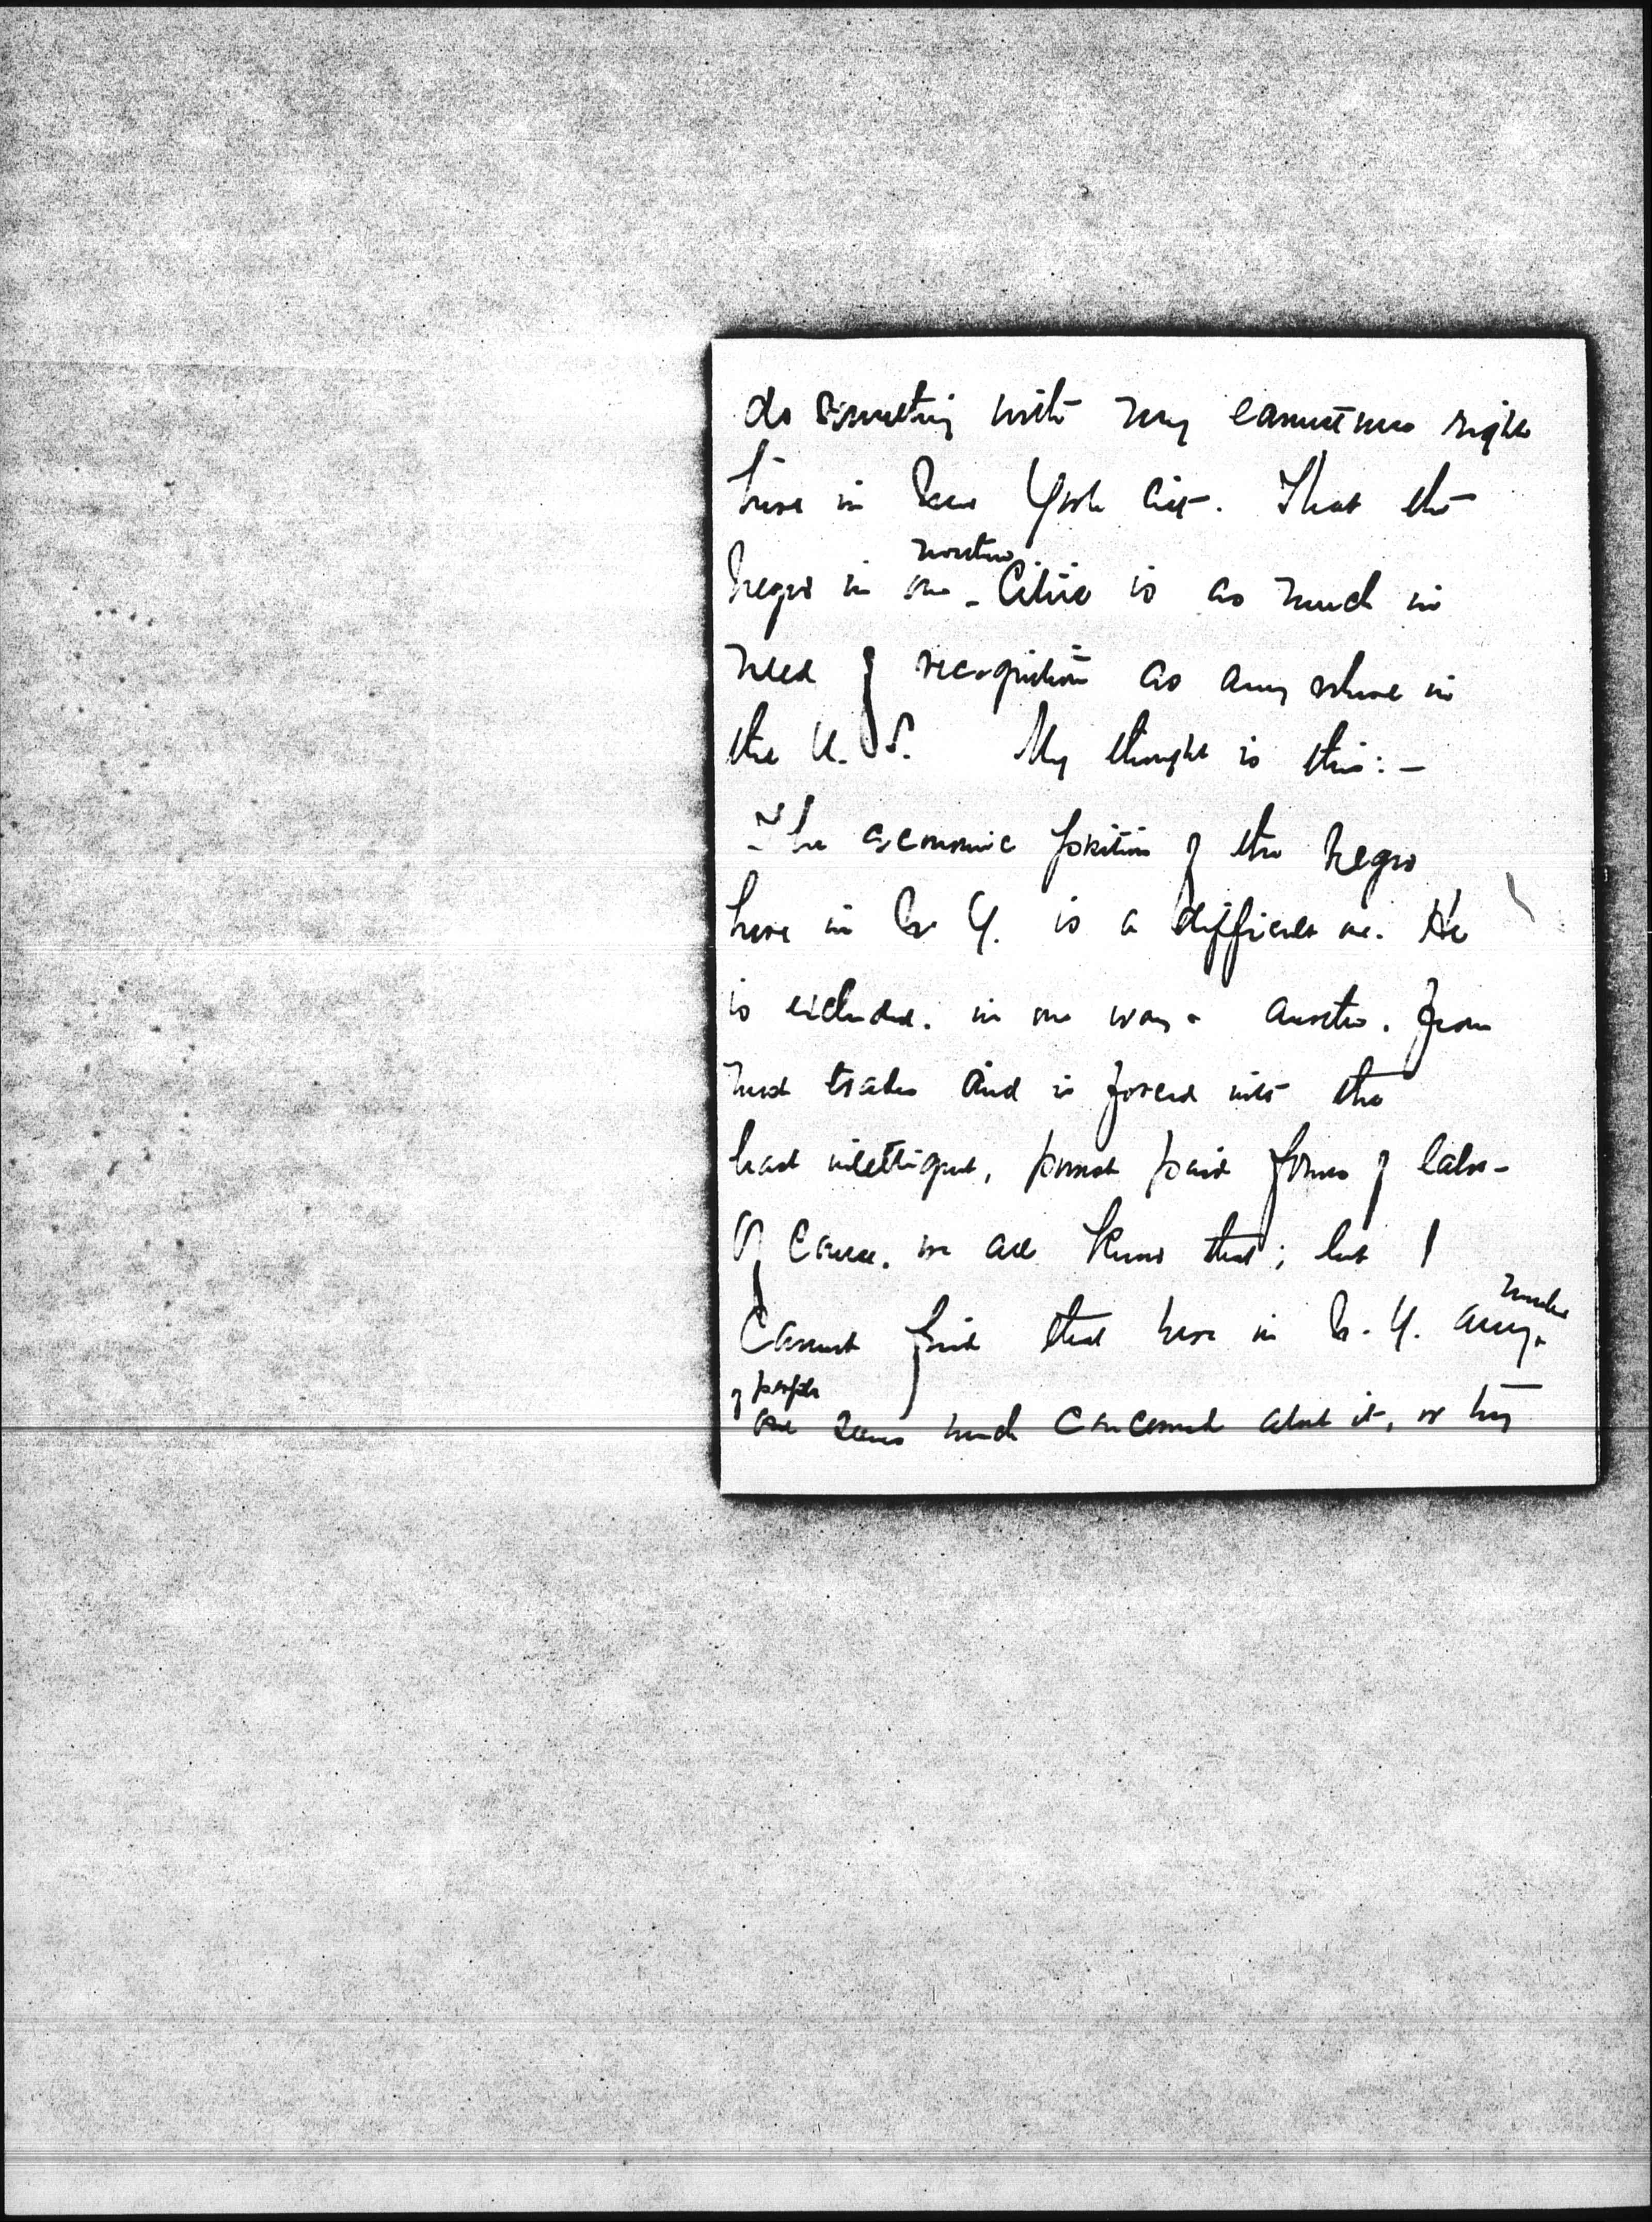 do something with my earnestness right
here in New York City. That the
northern
Negro in our Cities is as much in
need of recognition as any where in
the U. S. My thought is this:—
The economic position of the Negro
here in N. Y. is a difficult one. He
is excluded. in one way or another. from
most trades and is forced into the
least intelligent, poorest paid forms of labor-
Of course. we all know that; but I
number
cannot find that here in N. Y. any
of people
are seems much concerned about it, or try